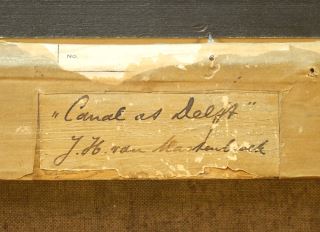 No.
„Canal at Delft"
J. H. van Mastenbroek